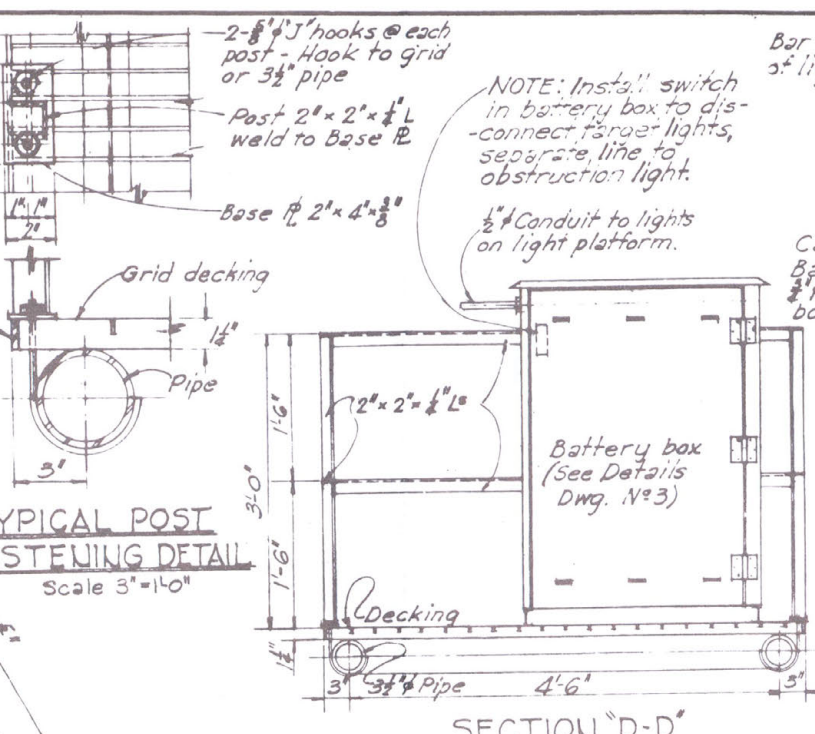 2-5/8"⌀ "J" hooks @ each
post - Hook to grid
or 3½" pipe
Post 2" x 2" x ¼" L
weld to Base ⅊
Base ⅊ 2" x 4" x 3/8"
1" 1"
2"
Grid decking
1¼"
Pipe
3"
YPICAL POST
STENING DETAIL
Scale 3"=1'-0"
Bar
of li
NOTE: Install switch
in battery box to dis-
-connect target lights,
separate line to
obstruction light.
½"⌀ Conduit to lights
on light platform.
Ba
1'-6"
3'-0"
1'-6"
2" x 2" x ¼" Ls
Battery box
(See Details
Dwg. Nº 3)
Decking
1¼"
3"
3½"⌀ Pipe
4'-6"
3"
SECTION "D-D"